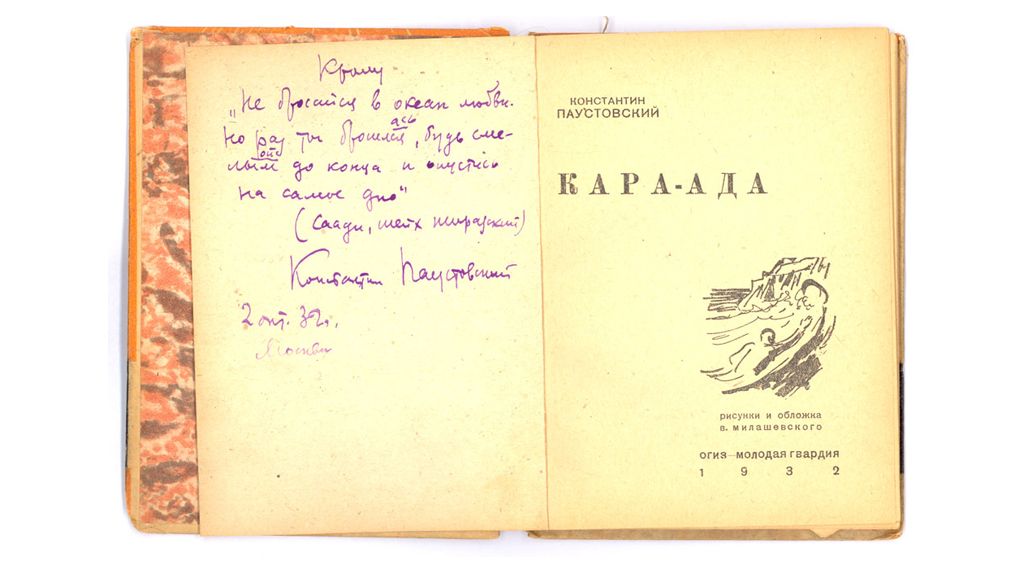 Кролу
„Не бросайся в океан любви.
Но раз ты бросился, будь сме-
лым до конца и опустись
на самое дно"
(Саади, шейх ширазский)
Константин Паустовский
2 окт. 32г.
Москва
КОНСТАНТИН
ПАУСТОВСКИЙ
КАРА-АДА
рисунки и обложка
в. милашевского
огиз—молодая гвардия
1 9 3 2